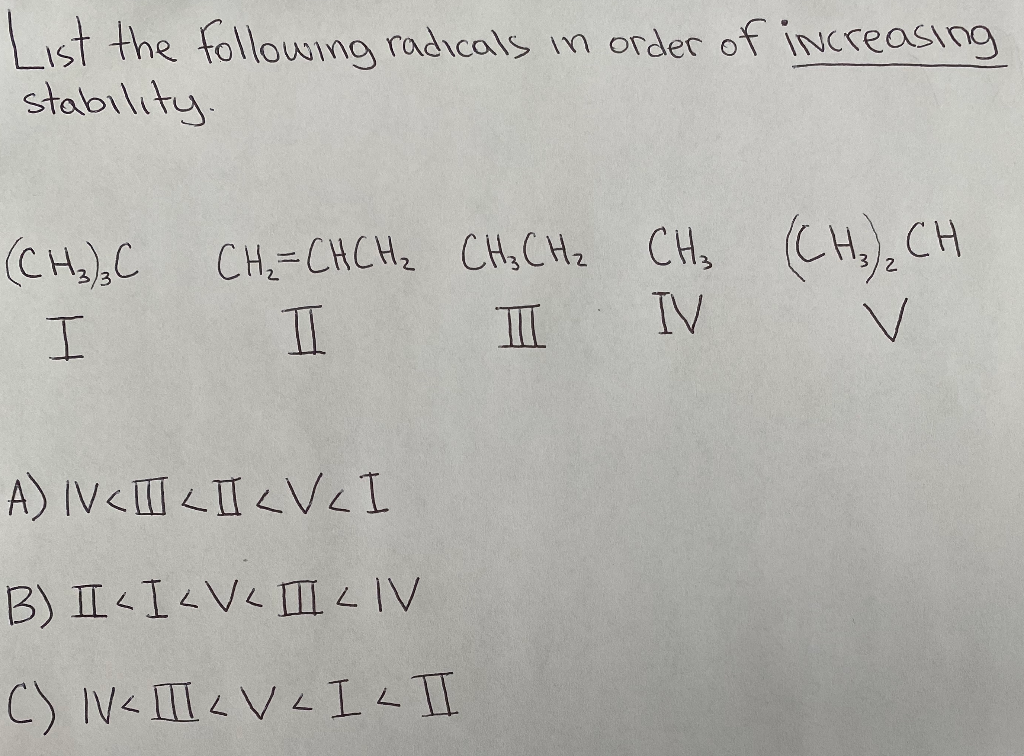 List the following radicals in order of increasing
stability.
(CH₃)₃C CH₂=CHCH₂ CH₃CH₂ CH₃ (CH₃)₂CH
I II III IV V
A) IV<III<II<V<I
B) II<I<V<III<IV
C) IV<III<V<I<II